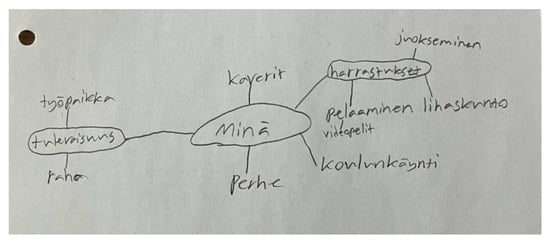 juokseminen
kaverit
harrastukset
työpaikka
pelaaminen lihaskunto
videopelit
Minä
tulevaisuus
koulunkäynti
raha
perhe